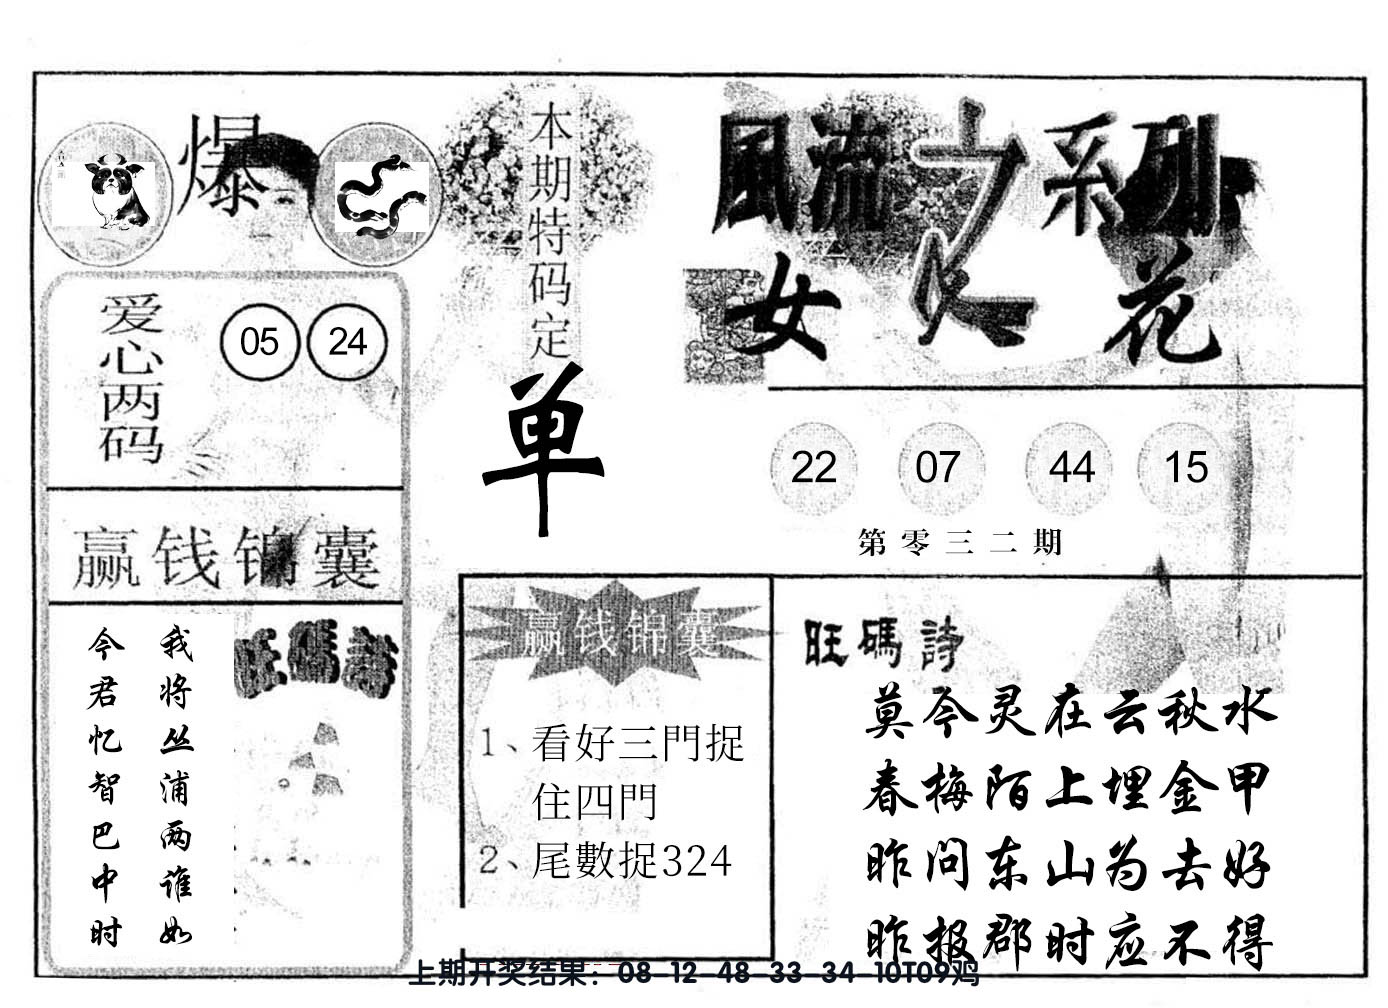 爆
本期特码定
单
風流之系列
女人花
爱心两码
05 24
22 07 44 15
第零三二期
赢钱锦囊
我将丛浦两谁如
今君忆智巴中时
旺碼詩
赢钱锦囊
1、看好三門捉
住四門
2、尾數捉324
旺碼詩
莫今灵在云秋水
春梅陌上埋金甲
昨问东山为去好
昨报郡时应不得
上期开奖结果：08-12-48-33-34-10T09鸡